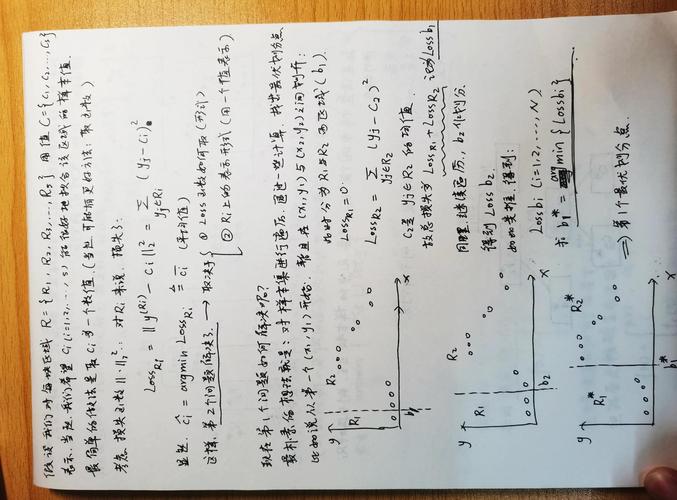 假设我们对每块区域 R={R₁, R₂, R₃, ..., Rₛ} 用值 C={C₁, C₂, ..., Cₛ}
表示, 当然, 我们希望 Cᵢ(i=1,2,...,s) 能很好地拟合该区域的样本值.
最简单的做法是取 Cᵢ 为一个数值. (当然 可能有更好方法: 取函数)
考虑 损失函数 ‖·‖₂²: 对 Rᵢ 来说 损失为:
Loss_Rᵢ = ‖y^(Rᵢ) - Cᵢ‖₂² = Σ_{yⱼ∈Rᵢ} (yⱼ-Cᵢ)²
显然. Ĉᵢ = argmin Loss_Rᵢ ≜ C̄ᵢ (平均值)
这样, 第2个问题解决了. → 取决于 { ① Loss 函数如何取 (形式)
② Rᵢ上的表示形式 (用一个值表示)
现在第1个问题如何解决呢?
最朴素的想法就是: 对样本集进行遍历. 通过一些计算, 找出最优划分点
比如说从第一个(x₁,y₁)开始. 我且在(x₁,y₁)与(x₂,y₂)之间划开:
此时分为R₁与R₂两区域 (b₁).
Loss_R₁ = 0
Loss_R₂ = Σ_{yⱼ∈R₂} (yⱼ-C₂)²
C₂是 yⱼ∈R₂ 的均值.
故总损失为 Loss_R₁+Loss_R₂ 记为Loss b₁
y
R₁
R₂
b₁
x
同理. 继续遍历, b₂处划分.
得到 Loss b₂.
如此类推. 得到:
Loss bᵢ (i=1,2,...,N)
y
R₁
R₂
b₂
x
求 b₁* = argmin {Loss bᵢ}
⇒ 第1个最优划分点.
y
R₁*
R₂*
b₁*
x